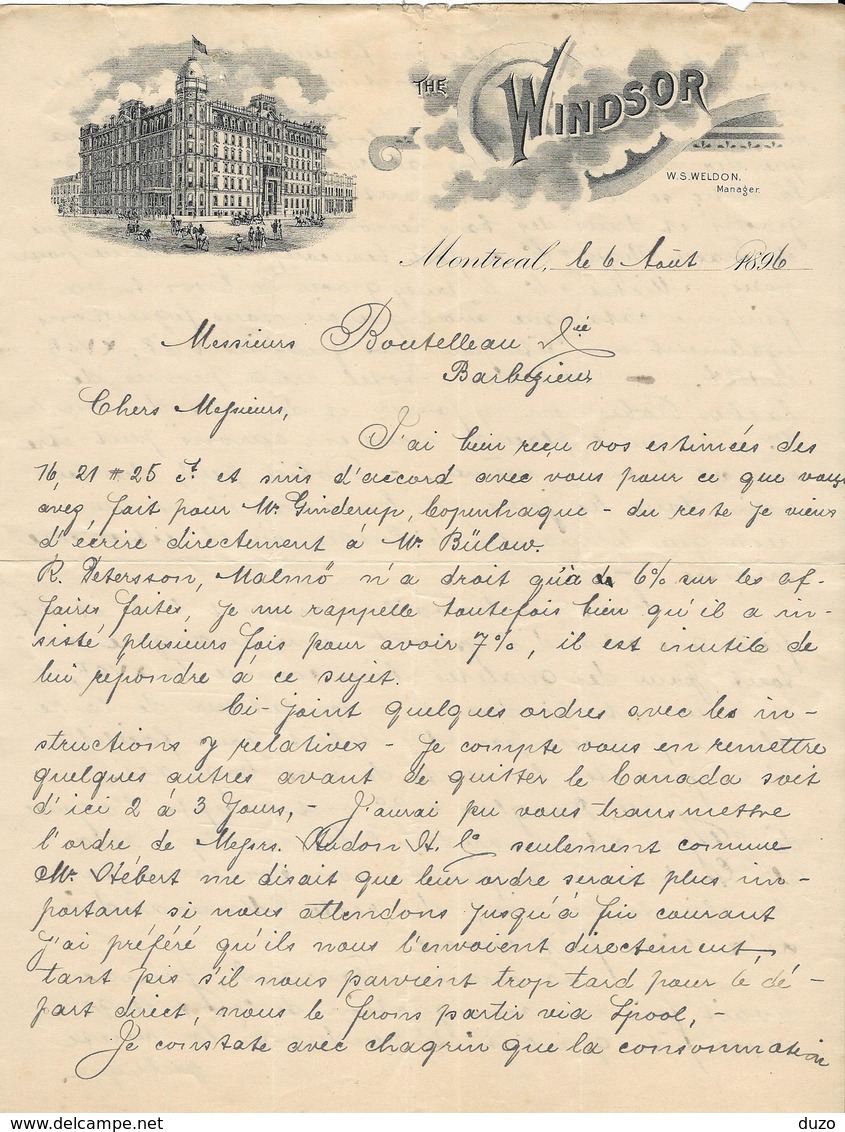 THE WINDSOR
W.S. WELDON,
Manager.
Montreal, le 6 Août 1896
Messieurs Boutelleau & Cie
Barbezieux
Chers Messieurs,
J'ai bien reçu vos estimées des
16, 21 & 25 ct. et suis d'accord avec vous pour ce que vous
avez fait pour Mr. Ginderup, Copenhague – du reste je viens
d'écrire directement à Mr. Bülow.
R. Petersson, Malmö n'a droit qu'à 6% sur les af-
faires faites, je me rappelle toutefois bien qu'il a in-
sisté plusieurs fois pour avoir 7%, il est inutile de
lui répondre à ce sujet.
Ci-joint quelques ordres avec les in-
structions y relatives – Je compte vous en remettre
quelques autres avant de quitter le Canada soit
d'ici 2 à 3 jours, – J'aurai pu vous transmettre
l'ordre de Messrs. Hudon H. Ce seulement comme
Mr. Hébert me disait que leur ordre serait plus im-
portant si nous attendons jusqu'à fin courant
j'ai préféré qu'ils nous l'envoient directement,
tant pis s'il nous parvient trop tard pour le dé-
part direct, nous le ferons partir via Lpool, –
Je constate avec chagrin que la consommation
delcampe.net
duzo